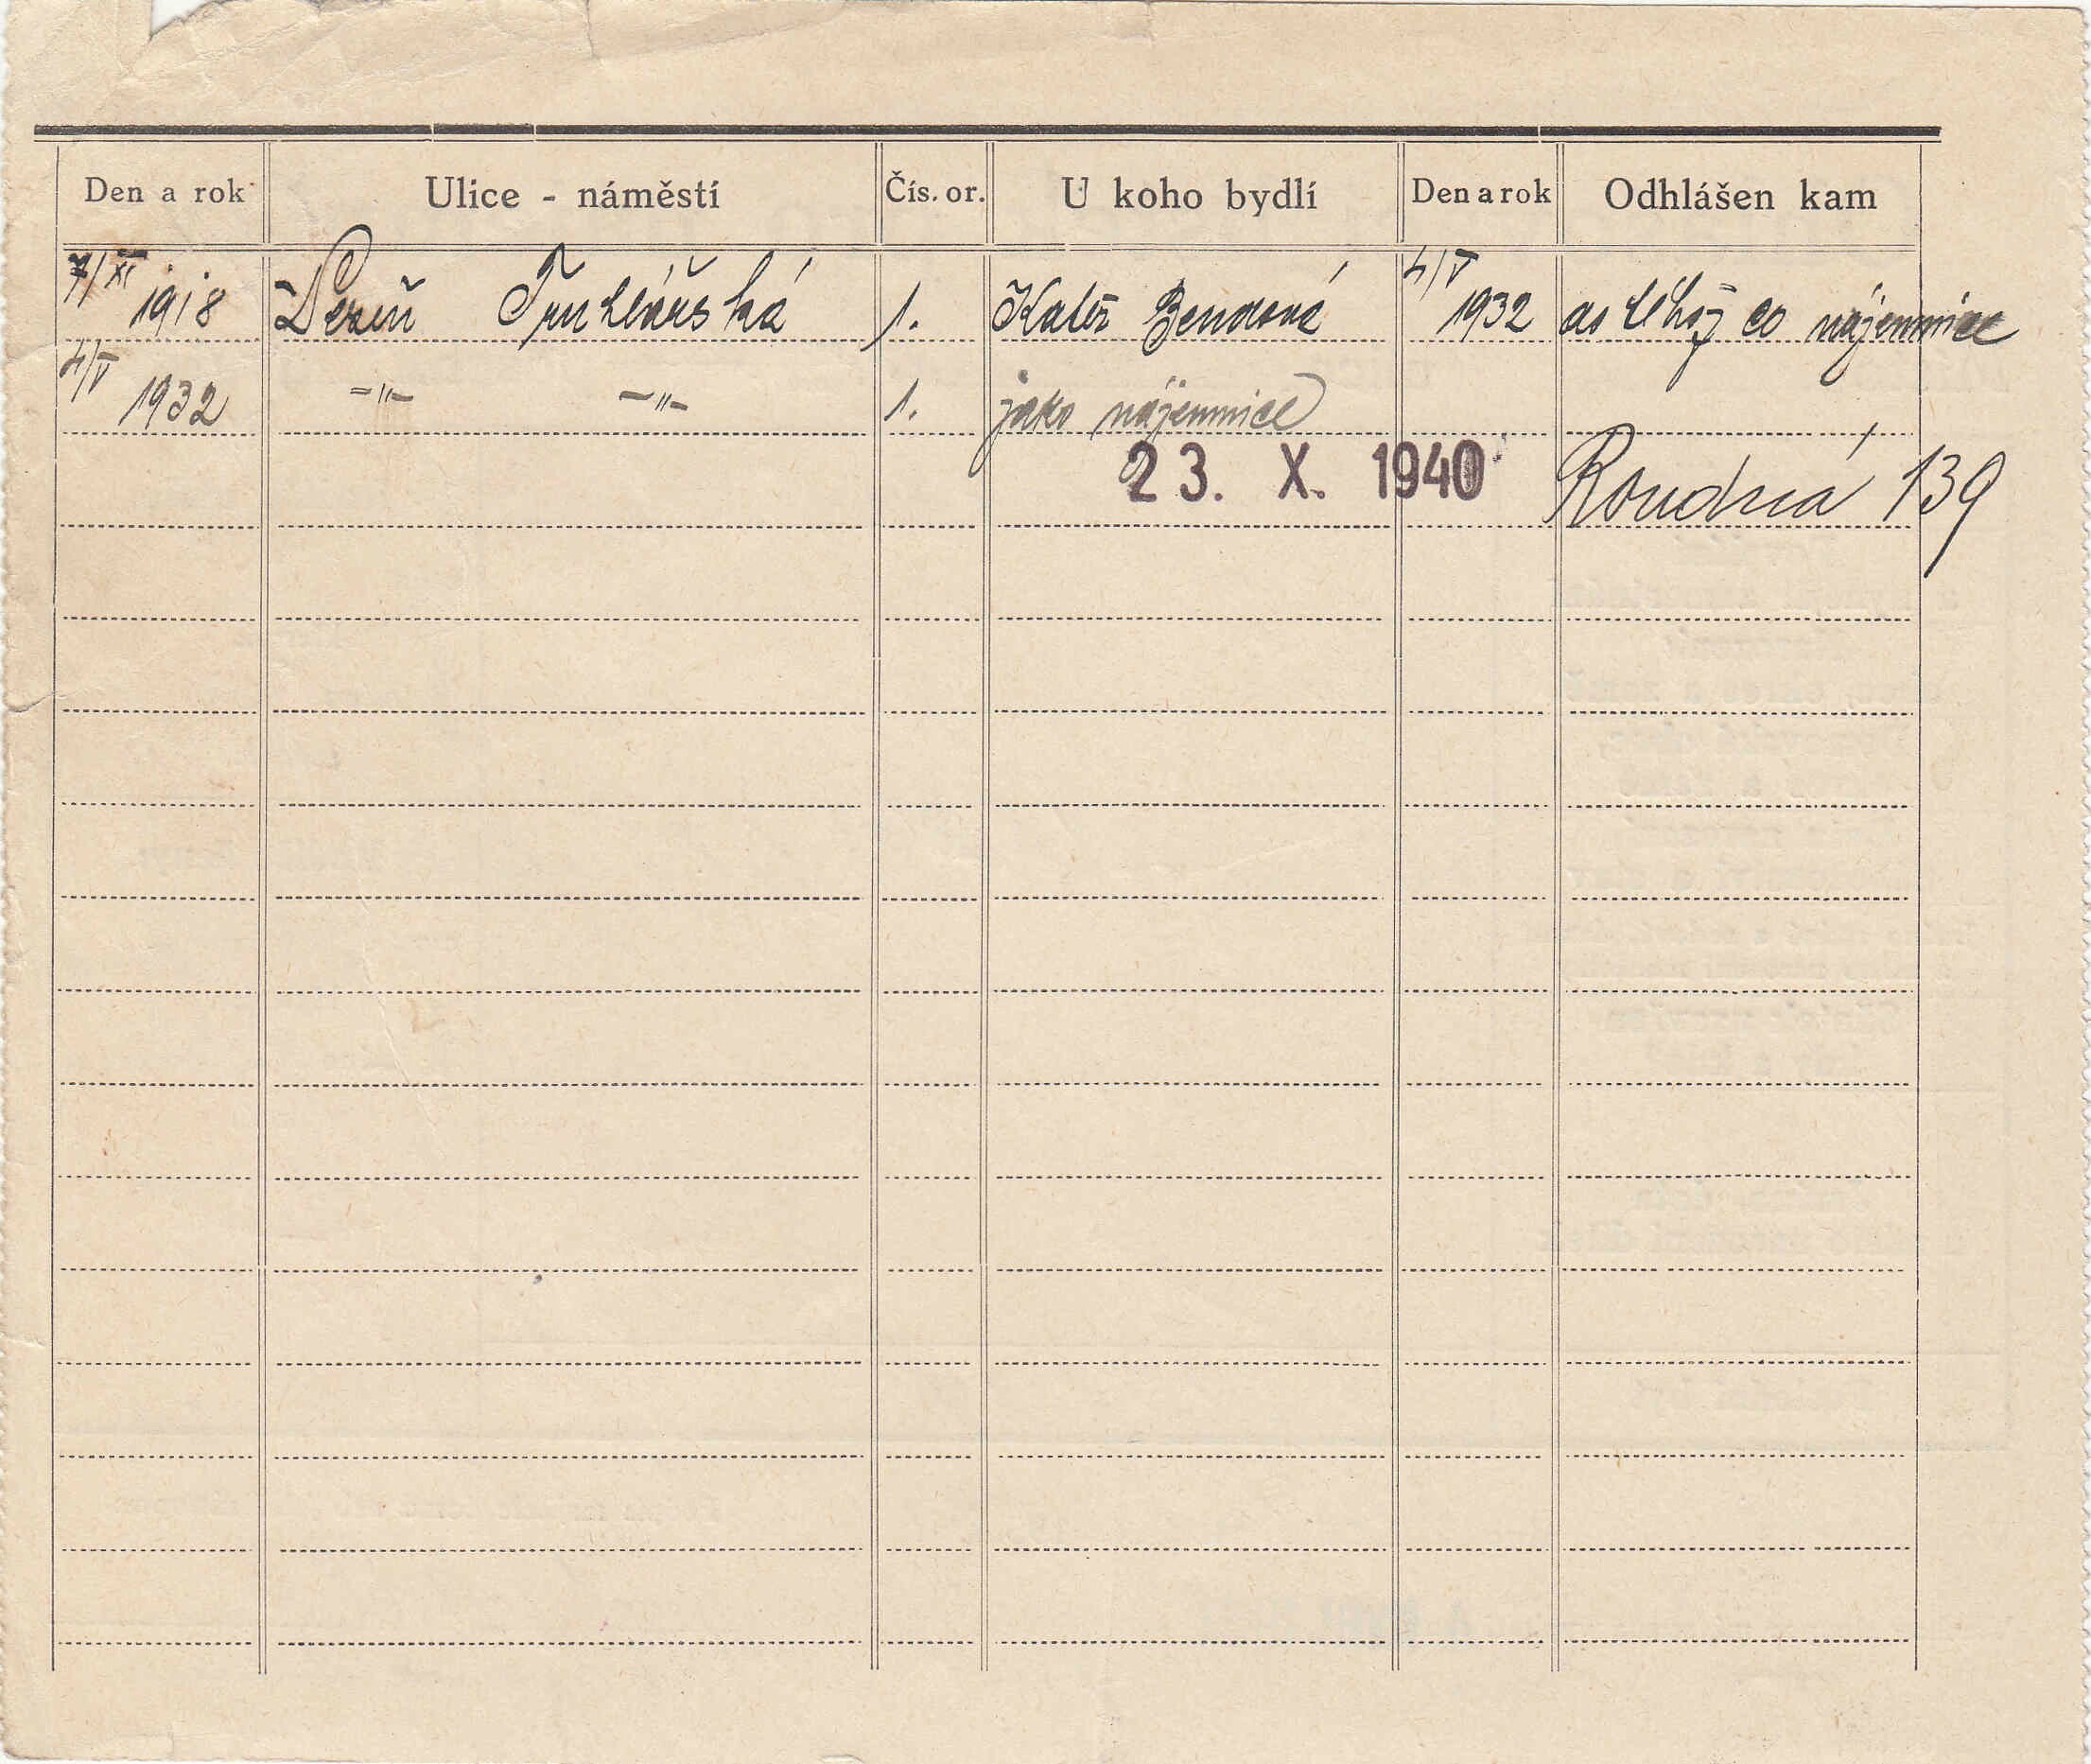 Den a rok Ulice - náměstí Čís. or. U koho bydlí Den a rok Odhlášen kam
7/XI 1918 Truhlářská 1. Kateř Bendová 4/V 1932 co nájemnice
4/V 1932 -"- -"- 1. jako nájemnice
23. X. 1940 Roudná 139